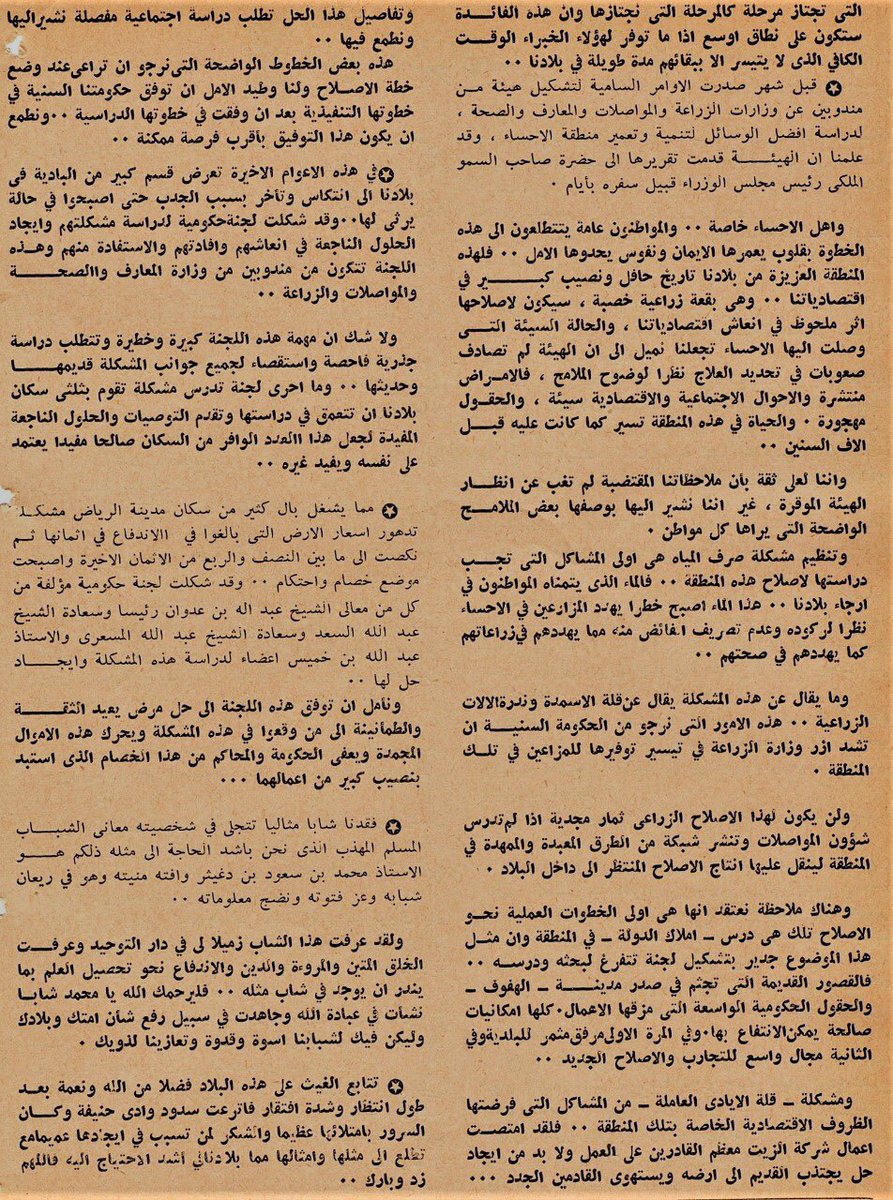 التى تجتاز مرحلة كالمرحلة التى نجتازها وان هذه الفائدة
ستكون على نطاق اوسع اذا ما توفر لهؤلاء الخبراء الوقت
الكافي الذى لا يتيسر الا ببقائهم مدة طويلة في بلادنا ٠٠
✪ قبل شهر صدرت الاوامر السامية لتشكيل هيئة من
مندوبين عن وزارات الزراعة والمواصلات والمعارف والصحة ،
لدراسة افضل الوسائل لتنمية وتعمير منطقة الاحساء ، وقد
علمنا ان الهيئة قدمت تقريرها الى حضرة صاحب السمو
الملكى رئيس مجلس الوزراء قبيل سفره بأيام ٠
واهل الاحساء خاصة ٠٠ والمواطنون عامة يتتطلعون الى هذه
الخطوة بقلوب يعمرها الايمان ونفوس يحدوها الامل ٠٠ فلهذه
المنطقة العزيزة من بلادنا تاريخ حافل ونصيب كبير في
اقتصادياتنا ٠٠ وهى بقعة زراعية خصبة ، سيكون لاصلاحها
اثر ملحوظ في انعاش اقتصادياتنا ، والحالة السيئة التى
وصلت اليها الاحساء تجعلنا نميل الى ان الهيئة لم تصادف
صعوبات في تحديد العلاج نظرا لوضوح الملامح ، فالامراض
منتشرة والاحوال الاجتماعية والاقتصادية سيئة ، والحقول
مهجورة ٠ والحياة في هذه المنطقة تسير كما كانت عليه قبل
الاف السنين ٠٠
واننا لعلى ثقة بأن ملاحظاتنا المقتضبة لم تغب عن انظار
الهيئة الموقرة ، غير اننا نشير اليها بوصفها بعض الملامح
الواضحة التى يراها كل مواطن ٠
وتنظيم مشكلة صرف المياه هى اولى المشاكل التى تجب
دراستها لاصلاح هذه المنطقة ٠٠ فالماء الذى يتمناه المواطنون في
ارجاء بلادنا ٠٠ هذا الماء اصبح خطرا يهدد المزارعين في الاحساء
نظرا لركوده وعدم تصريف الفائض منه مما يهددهم في زراعاتهم
كما يهددهم في صحتهم ٠٠
وما يقال عن هذه المشكلة يقال عن قلة الاسمدة وندرة الالات
الزراعية ٠٠ هذه الامور التى نرجو من الحكومة السنية ان
تشد ازر وزارة الزراعة في تيسير توفيرها للمزاعين في تلك
المنطقة ٠
ولن يكون لهذا الاصلاح الزراعى ثمار مجدية اذا لم تدرس
شؤون المواصلات وتنشر شبكة من الطرق المعبدة والممهدة في
المنطقة لينقل عليها انتاج الاصلاح المنتظر الى داخل البلاد ٠
وهناك ملاحظة نعتقد انها هى اولى الخطوات العملية نحو
الاصلاح تلك هى درس ــ املاك الدولة ــ في المنطقة وان مثل
هذا الموضوع جدير بتشكيل لجنة تتفرغ لبحثه ودرسه ٠٠
فالقصور القديمة التى تجثم في صدر مدينة ــ الهفوف ــ
والحقول الحكومية الواسعة التى مزقها الاهمال، كلها امكانيات
صالحة يمكن الانتفاع بها٠وفي المرة الاولى مرفق مثمر للبلدية وفي
الثانية مجال واسع للتجارب والاصلاح الجديد ٠٠
ومشكلة ــ قلة الايادى العاملة ــ من المشاكل التى فرضتها
الظروف الاقتصادية الخاصة بتلك المنطقة ٠٠ فلقد امتصت
اعمال شركة الزيت معظم القادرين على العمل ولا بد من ايجاد
حل يجتذب القديم الى ارضه ويستهوى القادمين الجدد ٠٠٠
وتفاصيل هذا الحل تطلب دراسة اجتماعية مفصلة نشير اليها
ونطمع فيها ٠٠
هذه بعض الخطوط الواضحة التى نرجو ان تراعى عند وضع
خطة الاصلاح ولنا وطيد الامل ان توفق حكومتنا السنية في
خطوتها التنفيذية بعد ان وفقت في خطوتها الدراسية ٠٠ونطمع
ان يكون هذا التوفيق بأقرب فرصة ممكنة ٠٠
✪ في هذه الاعوام الاخيرة تعرض قسم كبير من البادية فى
بلادنا الى انتكاس وتأخر بسبب الجدب حتى اصبحوا في حالة
يرثى لها٠٠وقد شكلت لجنة حكومية لدراسة مشكلتهم وايجاد
الحلول الناجعة في انعاشهم وافادتهم والاستفادة منهم وهذه
اللجنة تتكون من مندوبين من وزارة المعارف واالصحة
والمواصلات والزراعة ٠٠
ولا شك ان مهمة هذه اللجنة كبيرة وخطيرة وتتطلب دراسة
جذرية فاحصة واستقصاء لجميع جوانب المشكلة قديمها
وحديثها ٠٠ وما احرى لجنة تدرس مشكلة تقوم بثلثى سكان
بلادنا ان تتعمق في دراستها وتقدم التوصيات والحلول الناجعة
المفيدة لجعل هذا العدد الوافر من السكان صالحا مفيدا يعتمد
على نفسه ويفيد غيره ٠٠
✪ مما يشغل بال كثير من سكان مدينة الرياض مشكلة
تدهور اسعار الارض التى بالغوا في االاندفاع في اثمانها ثم
نكصت الى ما بين النصف والربع من الاثمان الاخيرة واصبحت
موضع خصام واحتكام ٠٠ وقد شكلت لجنة حكومية مؤلفة من
كل من معالى الشيخ عبد اله بن عدوان رئيسا وسعادة الشيخ
عبد الله السعد وسعادة الشيخ عبد الله المسعرى والاستاذ
عبد الله بن خميس اعضاء لدراسة هذه المشكلة وايجاد
حل لها ٠٠
ونأمل ان توفق هذه اللجنة الى حل مرض يعيد الثقة
والطمأنينة الى من وقعوا في هذه المشكلة ويحرك هذه الاموال
المجمدة ويعفى الحكومة والمحاكم من هذا الخصام الذى استبد
بنصيب كبير من اعمالهما ٠٠٠
✪ فقدنا شابا مثاليا تتجلى في شخصيته معانى الشباب
المسلم المهذب الذى نحن باشد الحاجة الى مثله ذلكم هو
الاستاذ محمد بن سعود بن دغيثر وافته منيته وهو في ريعان
شبابه وعز فتوته ونضج معلوماته ٠٠
ولقد عرفت هذا الشاب زميلا لى في دار التوحيد وعرفت
الخلق المتين والمروءة والدين والاندفاع نحو تحصيل العلم بما
يندر ان يوجد في شاب مثله ٠٠ فليرحمك الله يا محمد شابا
نشأت في عبادة الله وجاهدت في سبيل رفع شأن امتك وبلادك
وليكن فيك لشبابنا اسوة وقدوة وتعازينا لذويك ٠
✪ تتابع الغيث على هذه البلاد فضلا من الله ونعمة بعد
طول انتظار وشدة افتقار فاترعت سدود وادى حنيفة وكان
السرور بامتلائها عظيما والشكر لمن تسبب في ايجادها عميما مع
تطلع الى مثلها وامثالها مما بلادنا في أشد الاحتياج اليه فاللهم
زد وبارك ٠٠